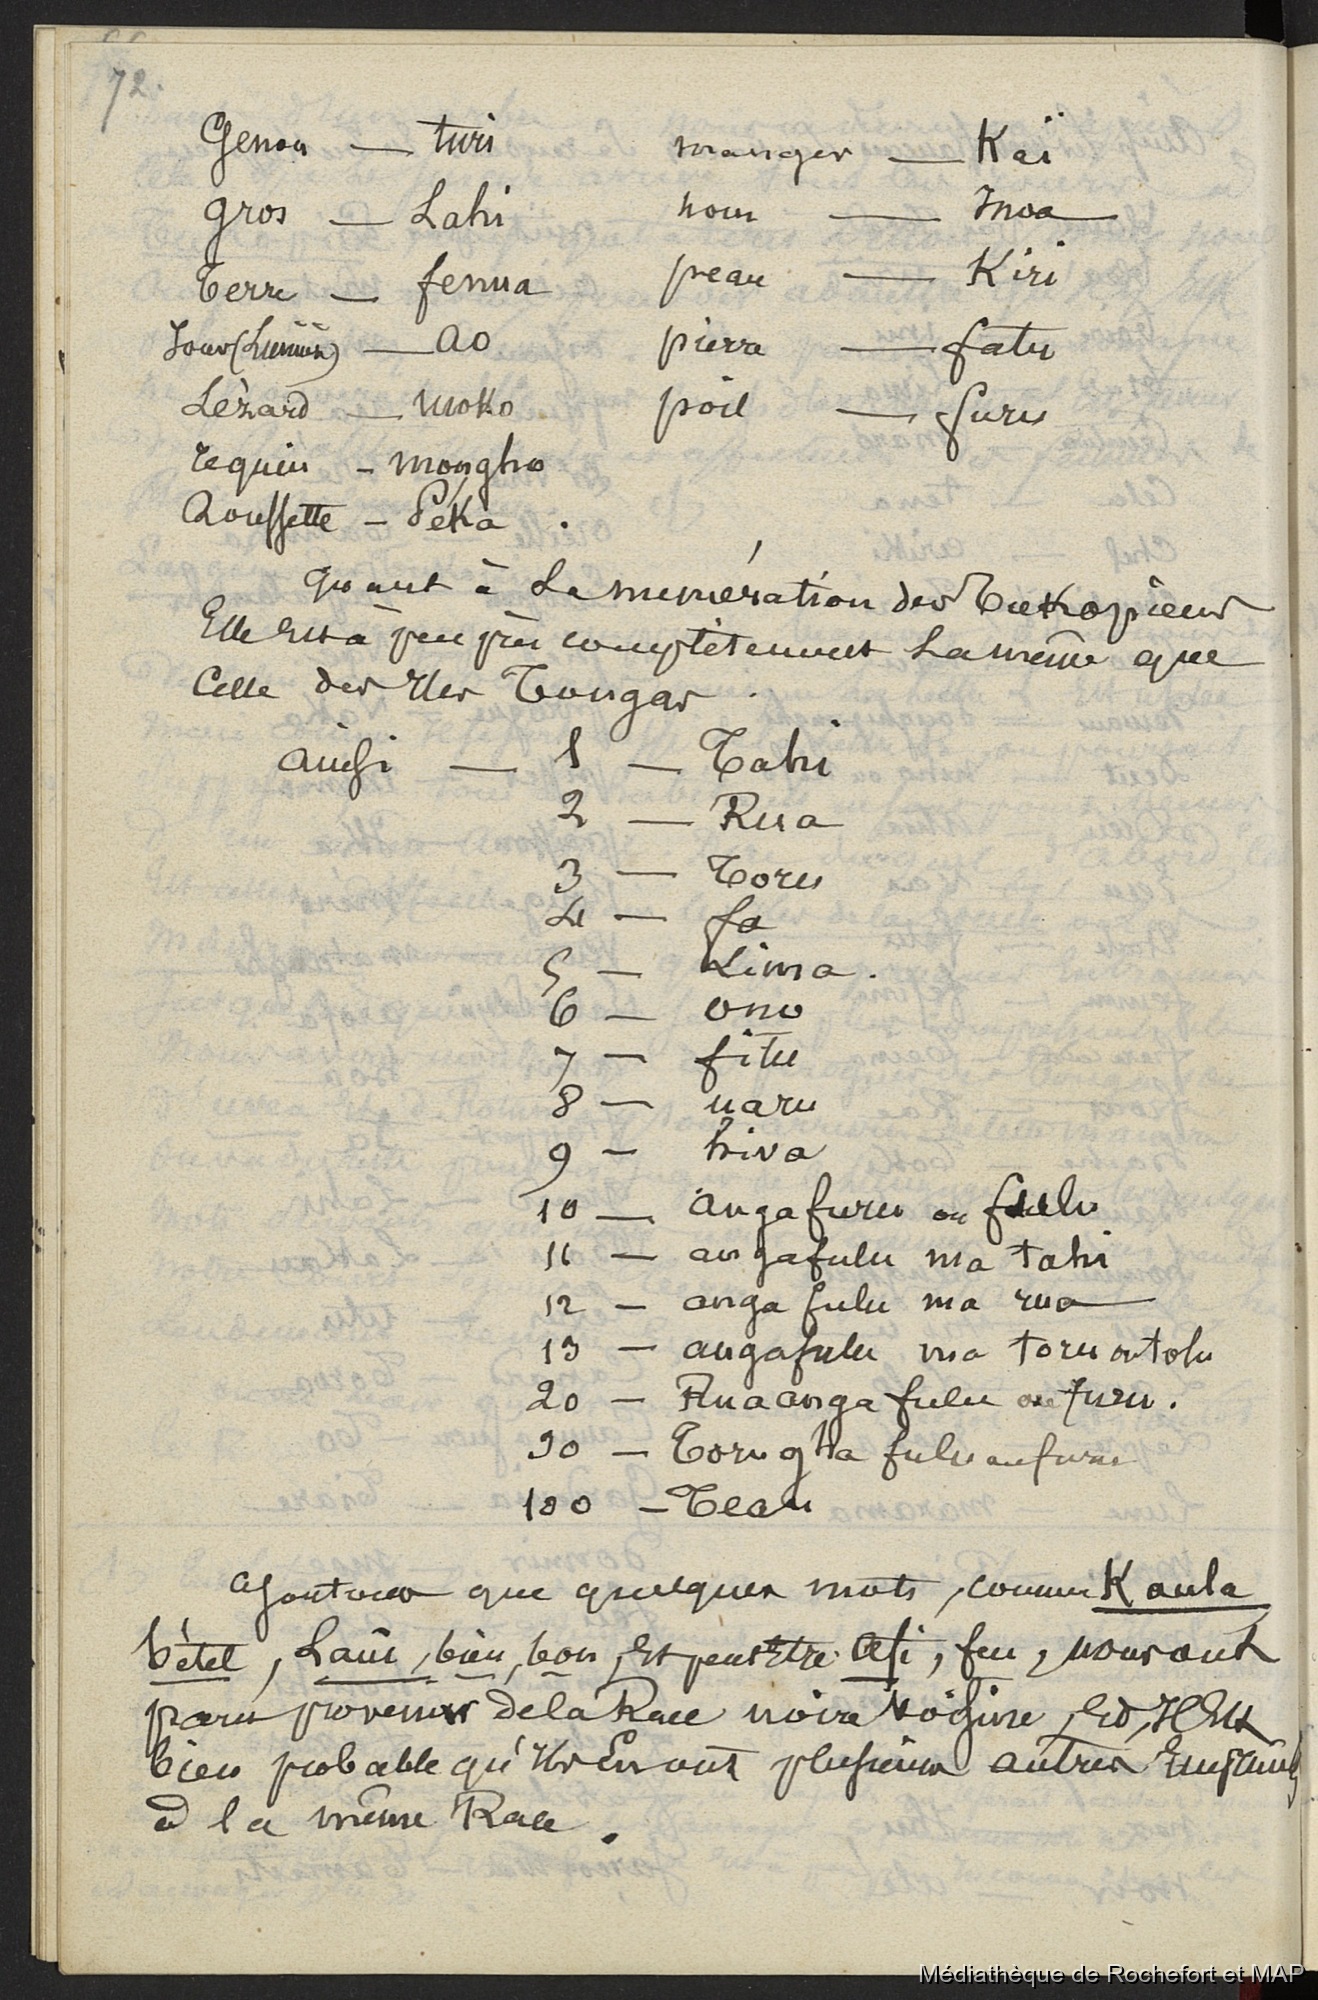 72.
Genou — turi
manger — Kaï
gros — Lahi
nom — Inoa
Terre — fenua
peau — Kiri
Jour (Lumière) — ao
pierre — fatu
Lézard — Moko
poil — furu
requin — mongho
Roussette — Péka.
Quant à la numération des Tukopiens
Elle est à peu près complètement la même que
celle des Iles Tongas.
ainsi — 1 — Tahi
2 — Rua
3 — Toru
4 — fa
5 — Lima.
6 — ono
7 — fitu
8 — uaru
9 — hiva
10 — angafuru ou fulu
11 — angafulu ma tahi
12 — angafulu ma rua
13 — angafulu ma toru ou tolu
20 — Rua anga fulu ou furu.
30 — Toru gha fulu ou furu
100 — Teau
ajoutons que quelques mots, comme Kaula
bétel, Laüi, bien, bon, et peut être Afi, feu, nous ont
paru provenir de la Race noire voisine, et il est
bien probable qu'ils en ont plusieurs autres empruntés
à la même Race.
Médiathèque de Rochefort et MAP